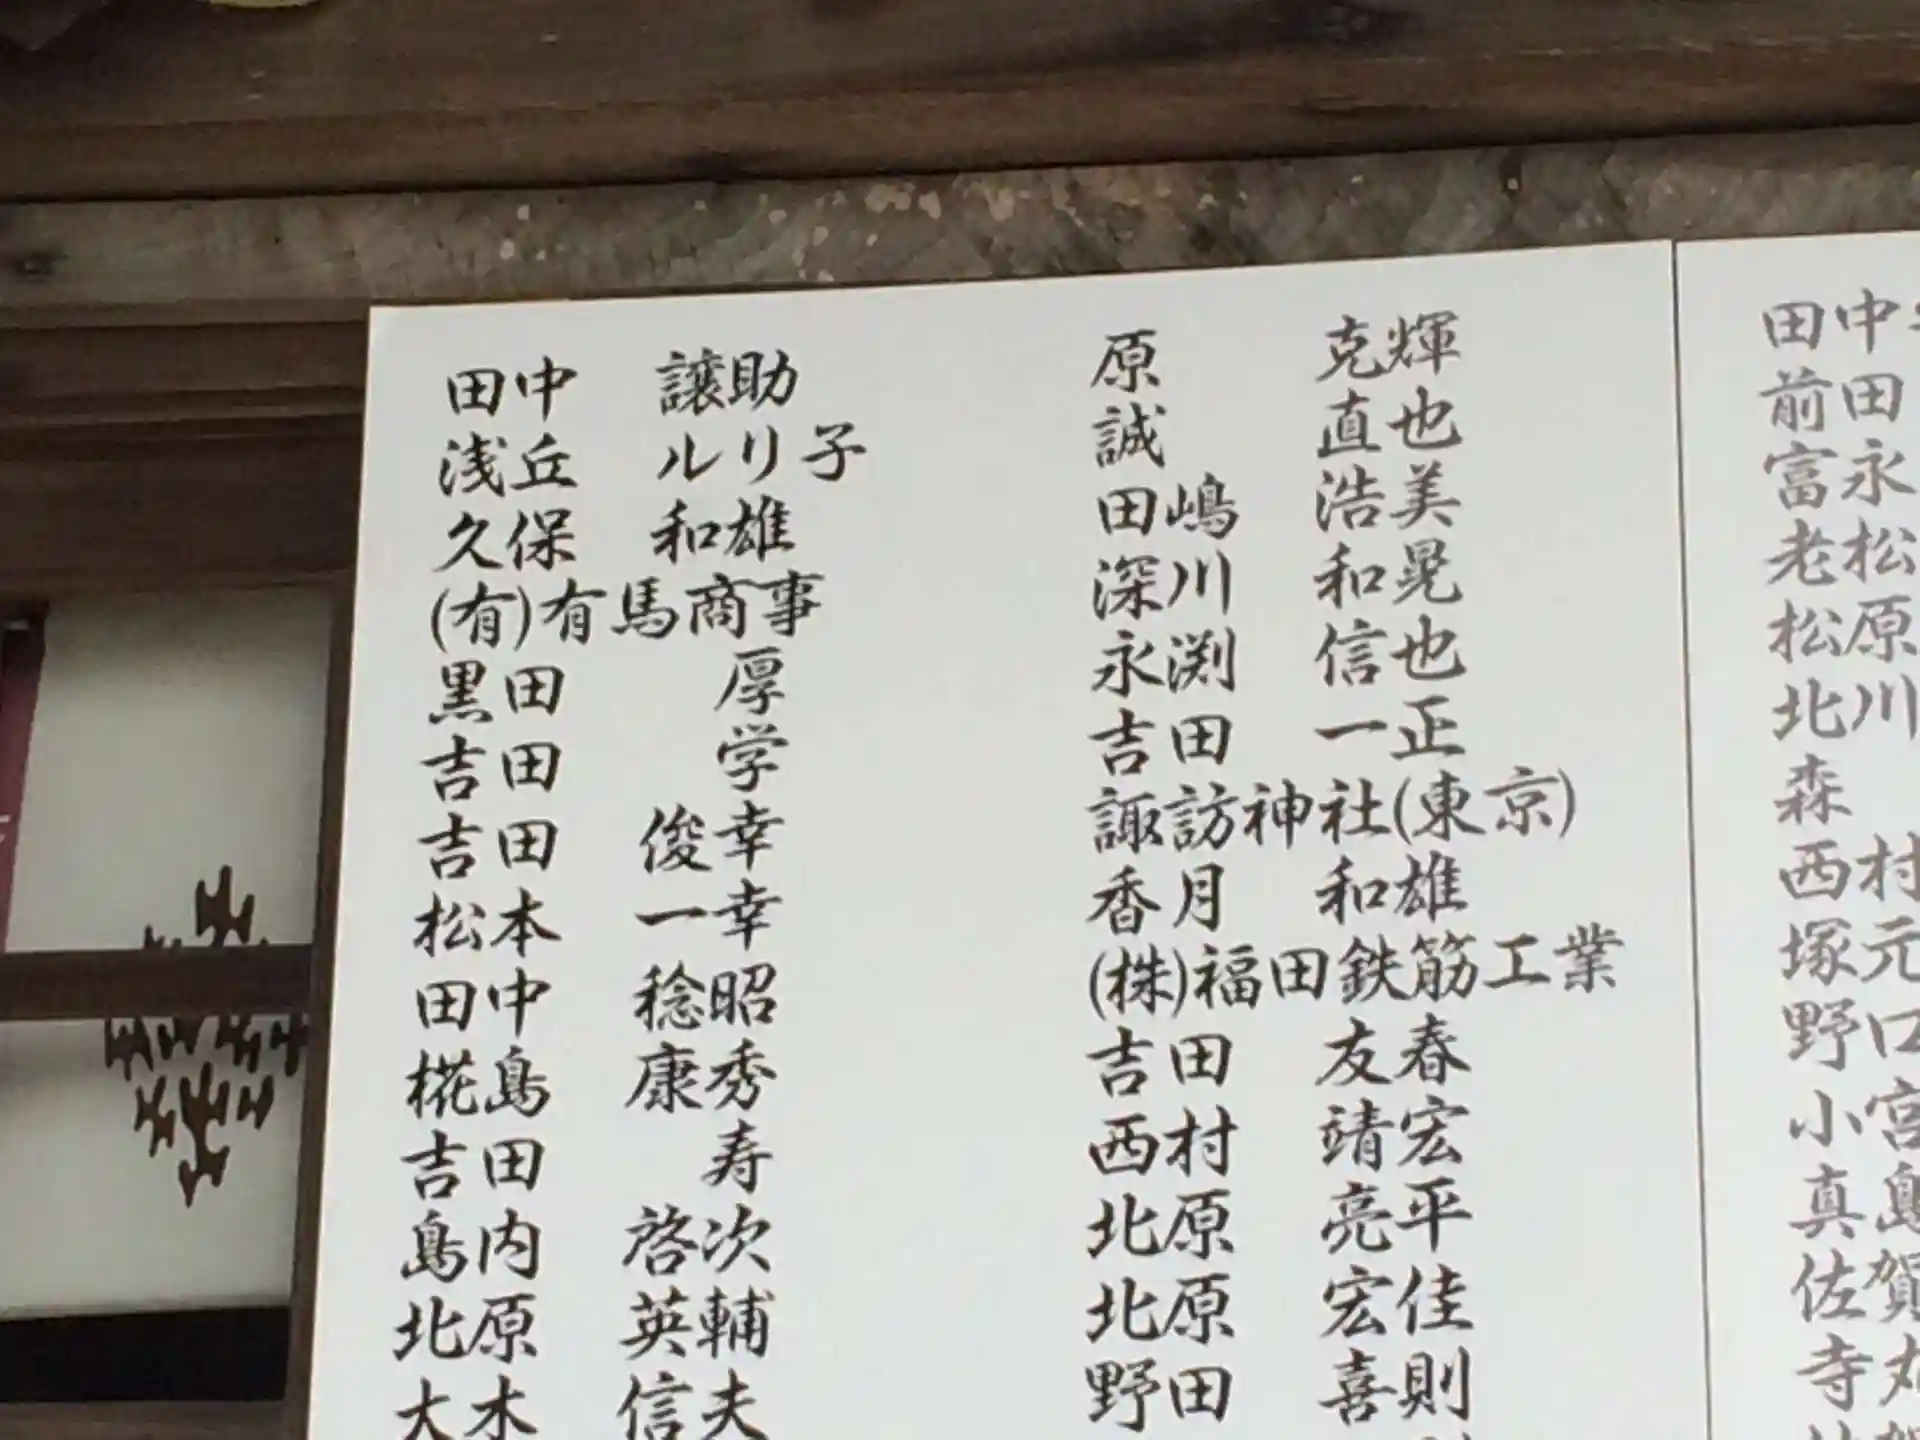 田中 譲助
浅丘 ルリ子
久保 和雄
(有)有馬商事
黒田 厚
吉田 学
吉田 俊幸
松本 一幸
田中 稔昭
椛島 康秀
吉田 寿
島内 啓次
北原 英輔
大木 信夫
原 克輝
誠 直也
田嶋 浩美
深川 和晃
永渕 信也
吉田 一正
諏訪神社(東京)
香月 和雄
(株)福田鉄筋工業
吉田 友春
西村 靖宏
北原 亮平
北原 宏佳
野田 喜則
田中
前田
富永
老松
松原
北川
森
西村
塚元
野口
小宮
真島
佐賀
寺丸